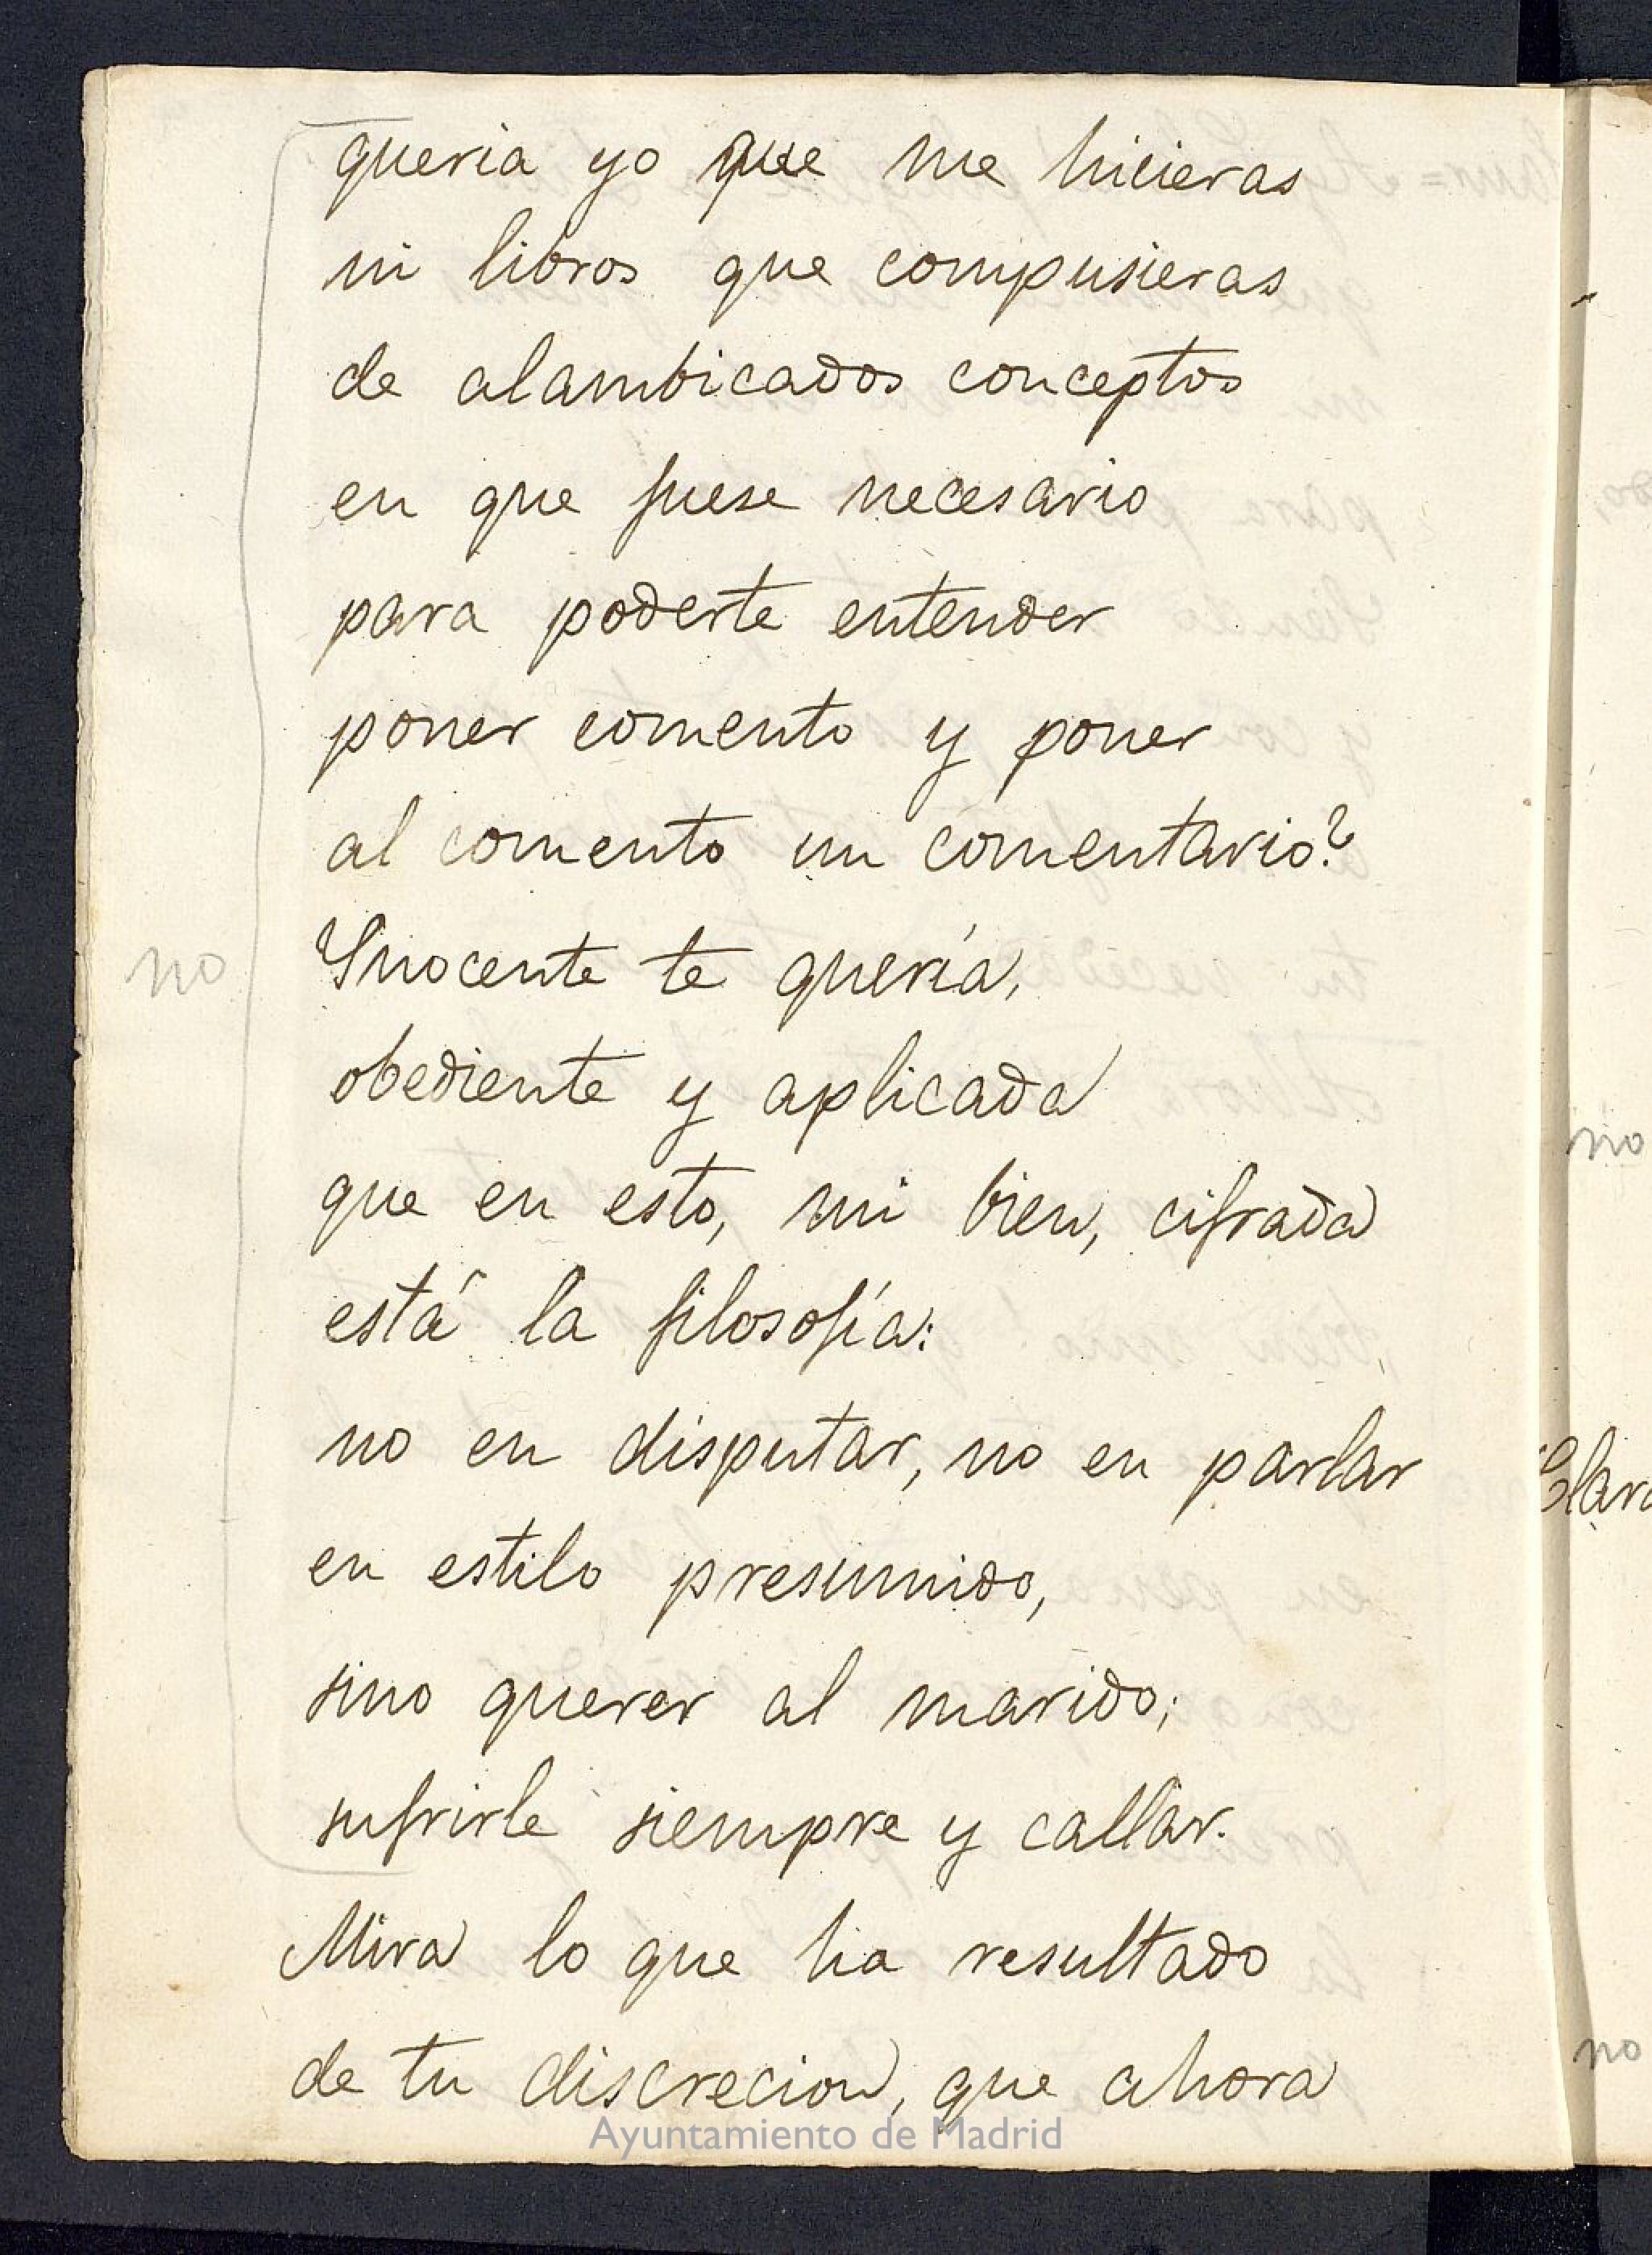 queria yo que me hicieras
ni libros que compusieras
de alambicados conceptos
en que fuese necesario
para poderte entender
poner comento y poner
al comento un comentario?
no
Inocente te quería,
obediente y aplicada
que en esto, mi bien, cifrada
está la filosofía:
no en disputar, no en parlar
en estilo presumido,
sino querer al marido;
sufrirle siempre y callar.
Mira lo que ha resultado
de tu discrecion, que ahora
Ayuntamiento de Madrid
no
Clara
no